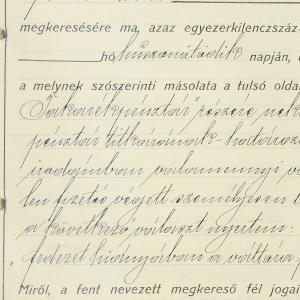 megkeresésére ma, azaz egyezerkilenczszáz
hó huszonötödik napján,
a melynek szószerinti másolata a tulsó olda
Takarékpénztár részére
pénztár titkárának határo
irodájában valamennyi
len fizetés végett személyesen
a következő választ nyertem:
fedezet hiányában a váltóra
Miről, a fent nevezett megkereső fél jogai